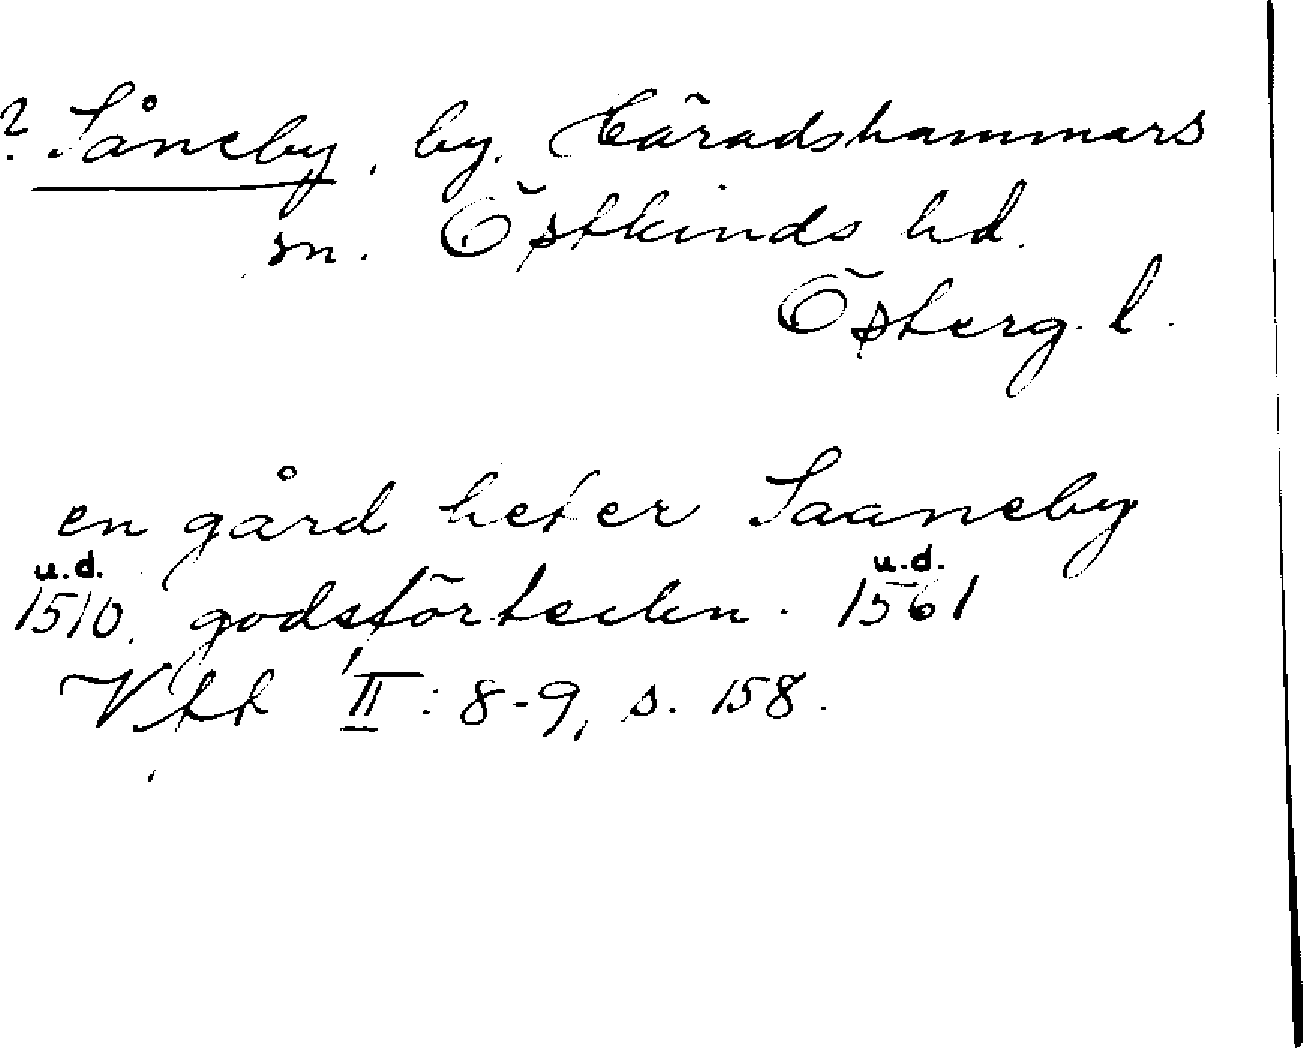 ? Såneby, by. Häradshammars
sn. Östkinds hd.
Österg. l.
en gård heter Saaneby
u.d. u.d.
1510. godsförteckn. 1561
Vitt II: 8-9, s. 158.